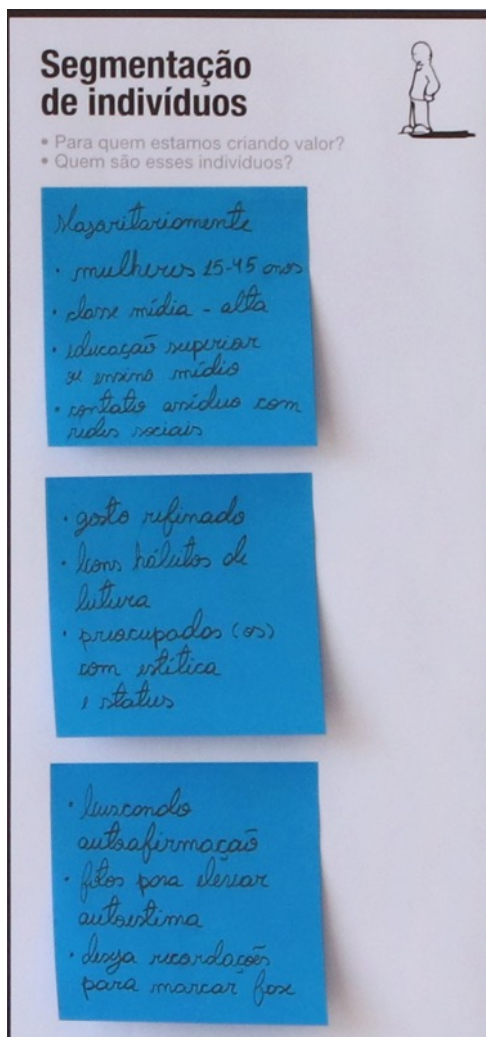 Segmentação
de indivíduos
• Para quem estamos criando valor?
• Quem são esses indivíduos?
Majoritariamente
• mulheres 15-45 anos
• classe média - alta
• educação superior
ou ensino médio
• contato assíduo com
redes sociais
• gosto refinado
• bons hábitos de
leitura
• preocupadas (os)
com estética
e status
• buscando
autoafirmação
• fotos para elevar
autoestima
• deseja recordações
para marcar fase